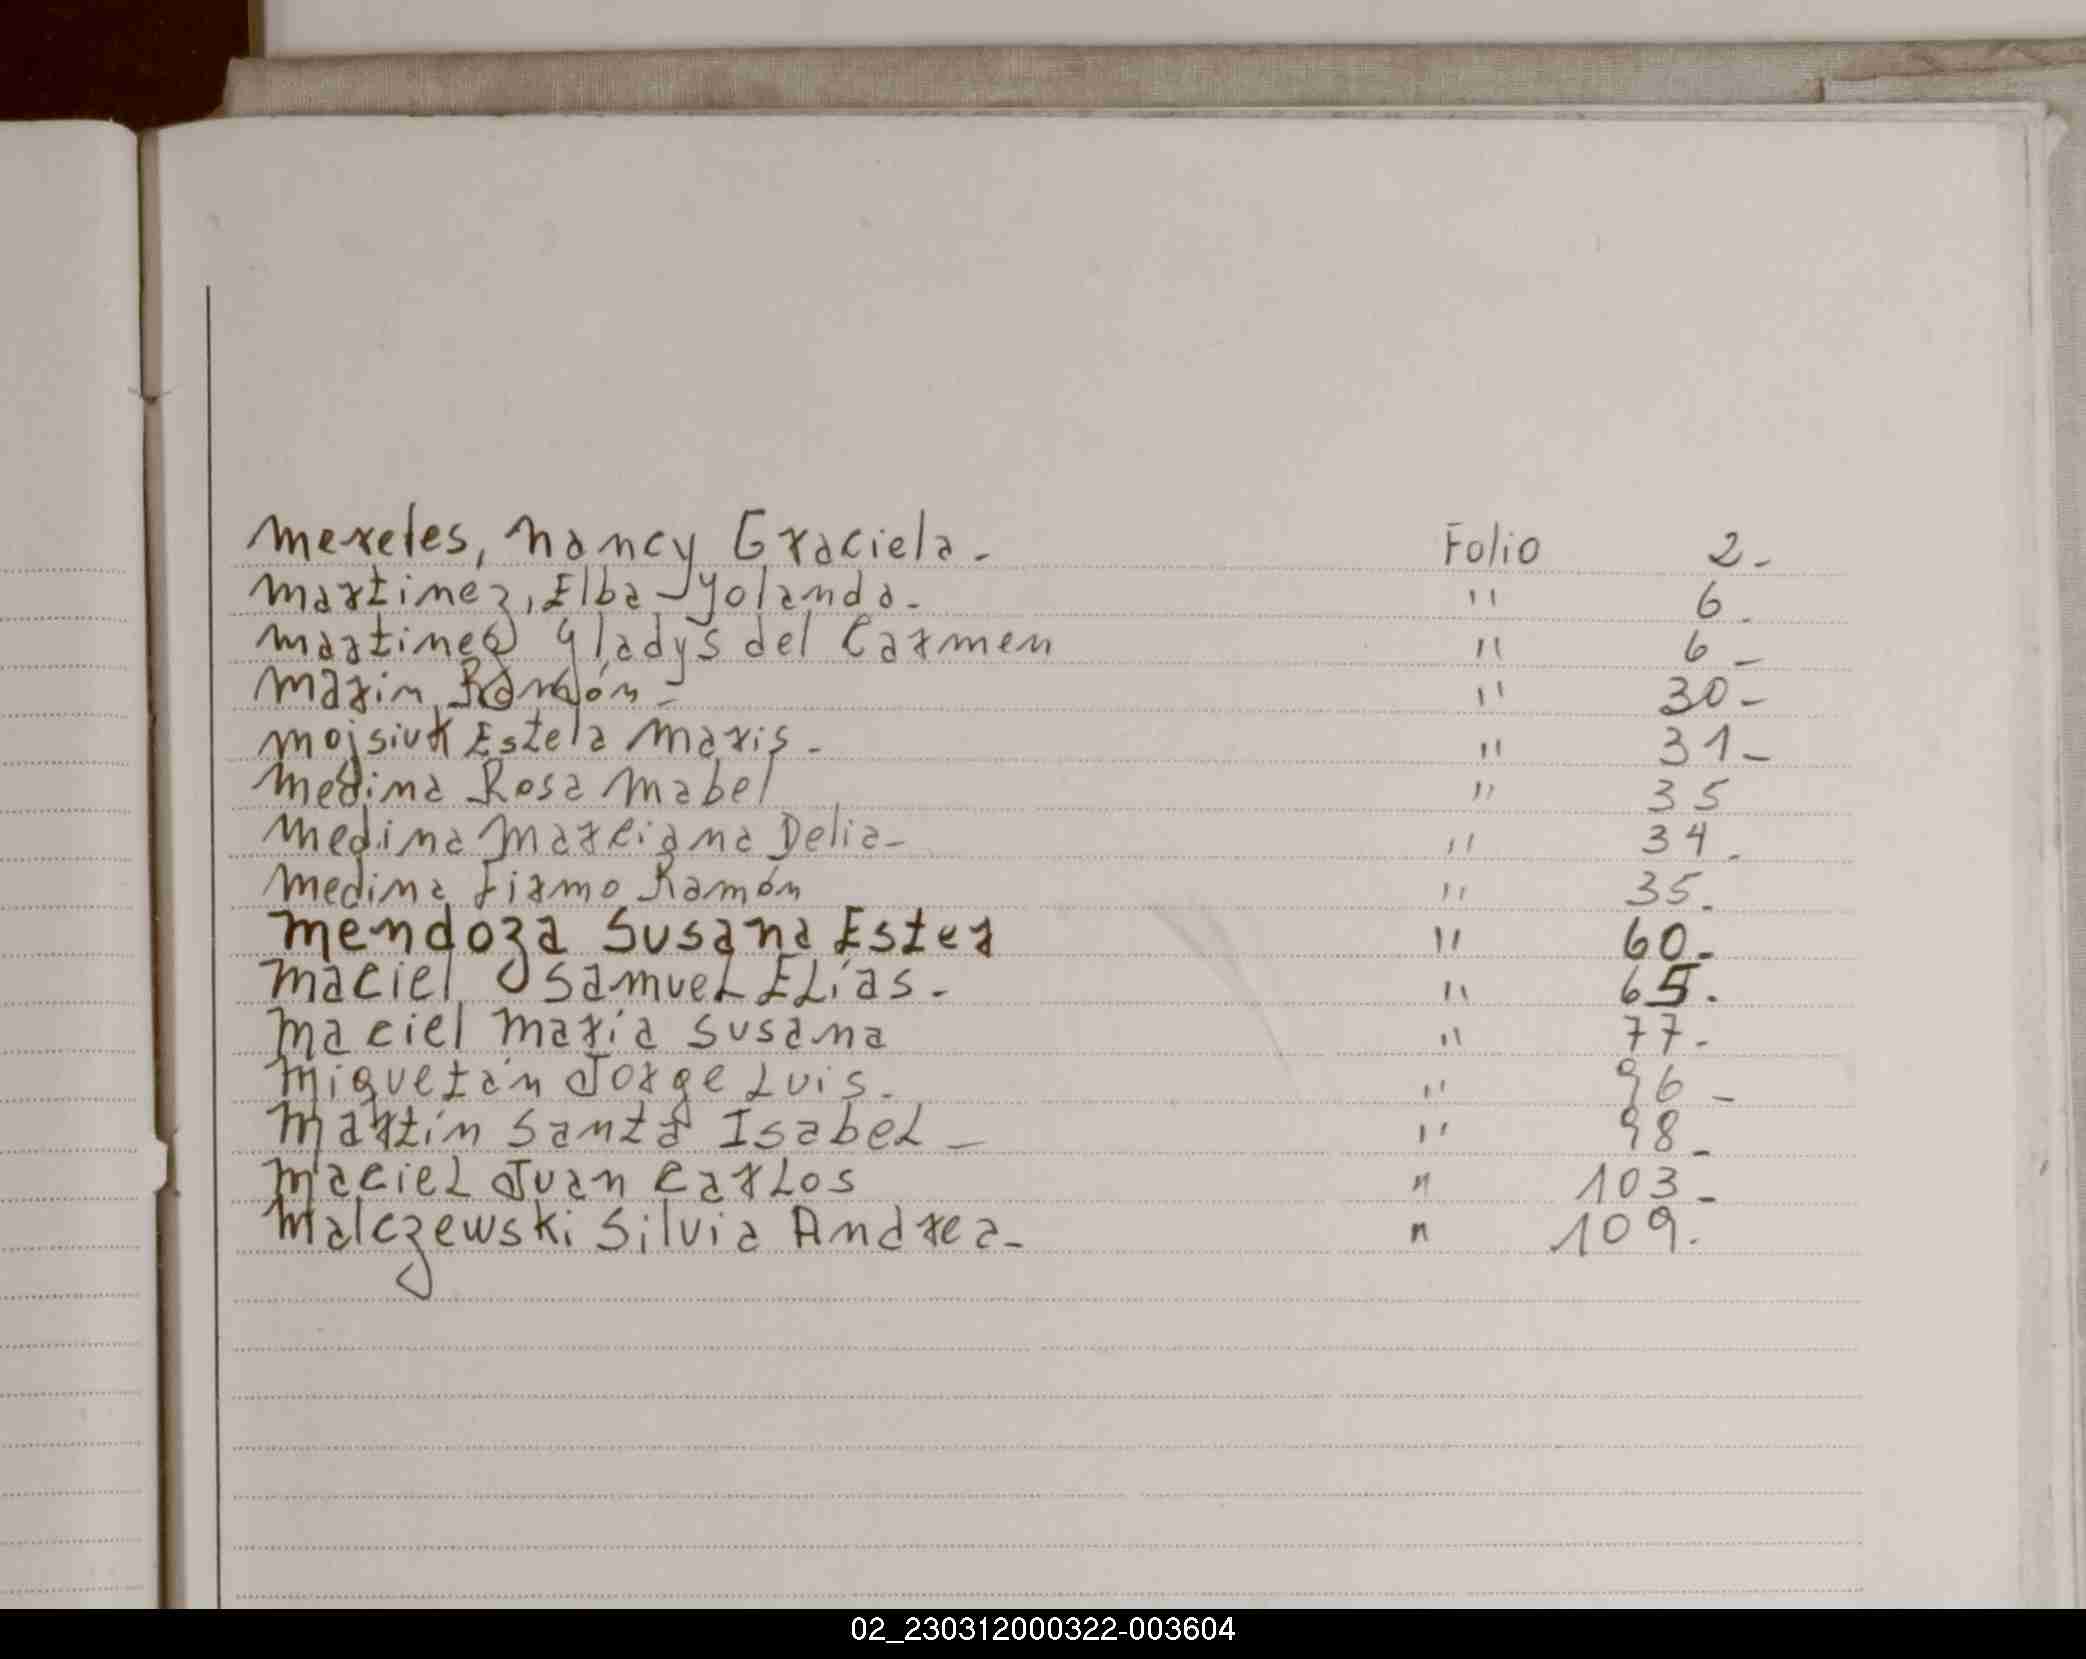 Mereles, Nancy Graciela. Folio 2.
Martinez, Elba Yolanda. " 6.
Martinez Gladys del Carmen " 6.
Marin Ramón - " 30.
Mojsiuk Estela Maris. " 31.
Medina Rosa Mabel " 35
Medina Marciana Delia. " 34.
Medina Firmo Ramón " 35.
Mendoza Susana Ester " 60.
Maciel Samuel Elías. " 65.
Maciel María Susana " 77.
Miguetán Jorge Luis. " 96.
Martín Santa Isabel. " 98.
Maciel Juan Carlos " 103.
Malczewski Silvia Andrea. " 109.
02_230312000322-003604